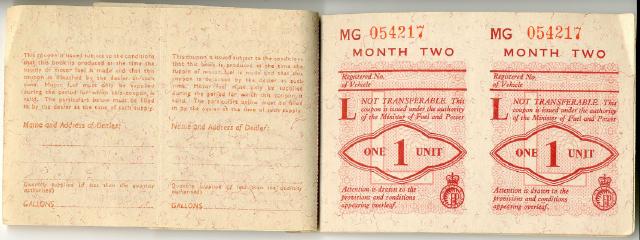 This coupon is issued subject to the conditions
that this book is produced at the time the
supply of motor fuel is made and that this
coupon is detached by the dealer at such
time. Motor fuel must only be supplied
during the period for which this coupon is
valid. The particulars below must be filled
in by the dealer at the time of such supply.
Name and Address of Dealer:
Quantity supplied (if less than the quantity
authorised)
GALLONS
This coupon is issued subject to the conditions
that this book is produced at the time the
supply of motor fuel is made and that this
coupon is detached by the dealer at such
time. Motor fuel must only be supplied
during the period for which this coupon is
valid. The particulars below must be filled
in by the dealer at the time of such supply.
Name and Address of Dealer:
Quantity supplied (if less than the quantity
authorised)
GALLONS
MG 054217
MONTH TWO
Registered No.
of Vehicle
L NOT TRANSFERABLE. This
coupon is issued under the authority
of the Minister of Fuel and Power
ONE 1 UNIT
Attention is drawn to the
provisions and conditions
appearing overleaf.
MG 054217
MONTH TWO
Registered No.
of Vehicle
L NOT TRANSFERABLE. This
coupon is issued under the authority
of the Minister of Fuel and Power
ONE 1 UNIT
Attention is drawn to the
provisions and conditions
appearing overleaf.